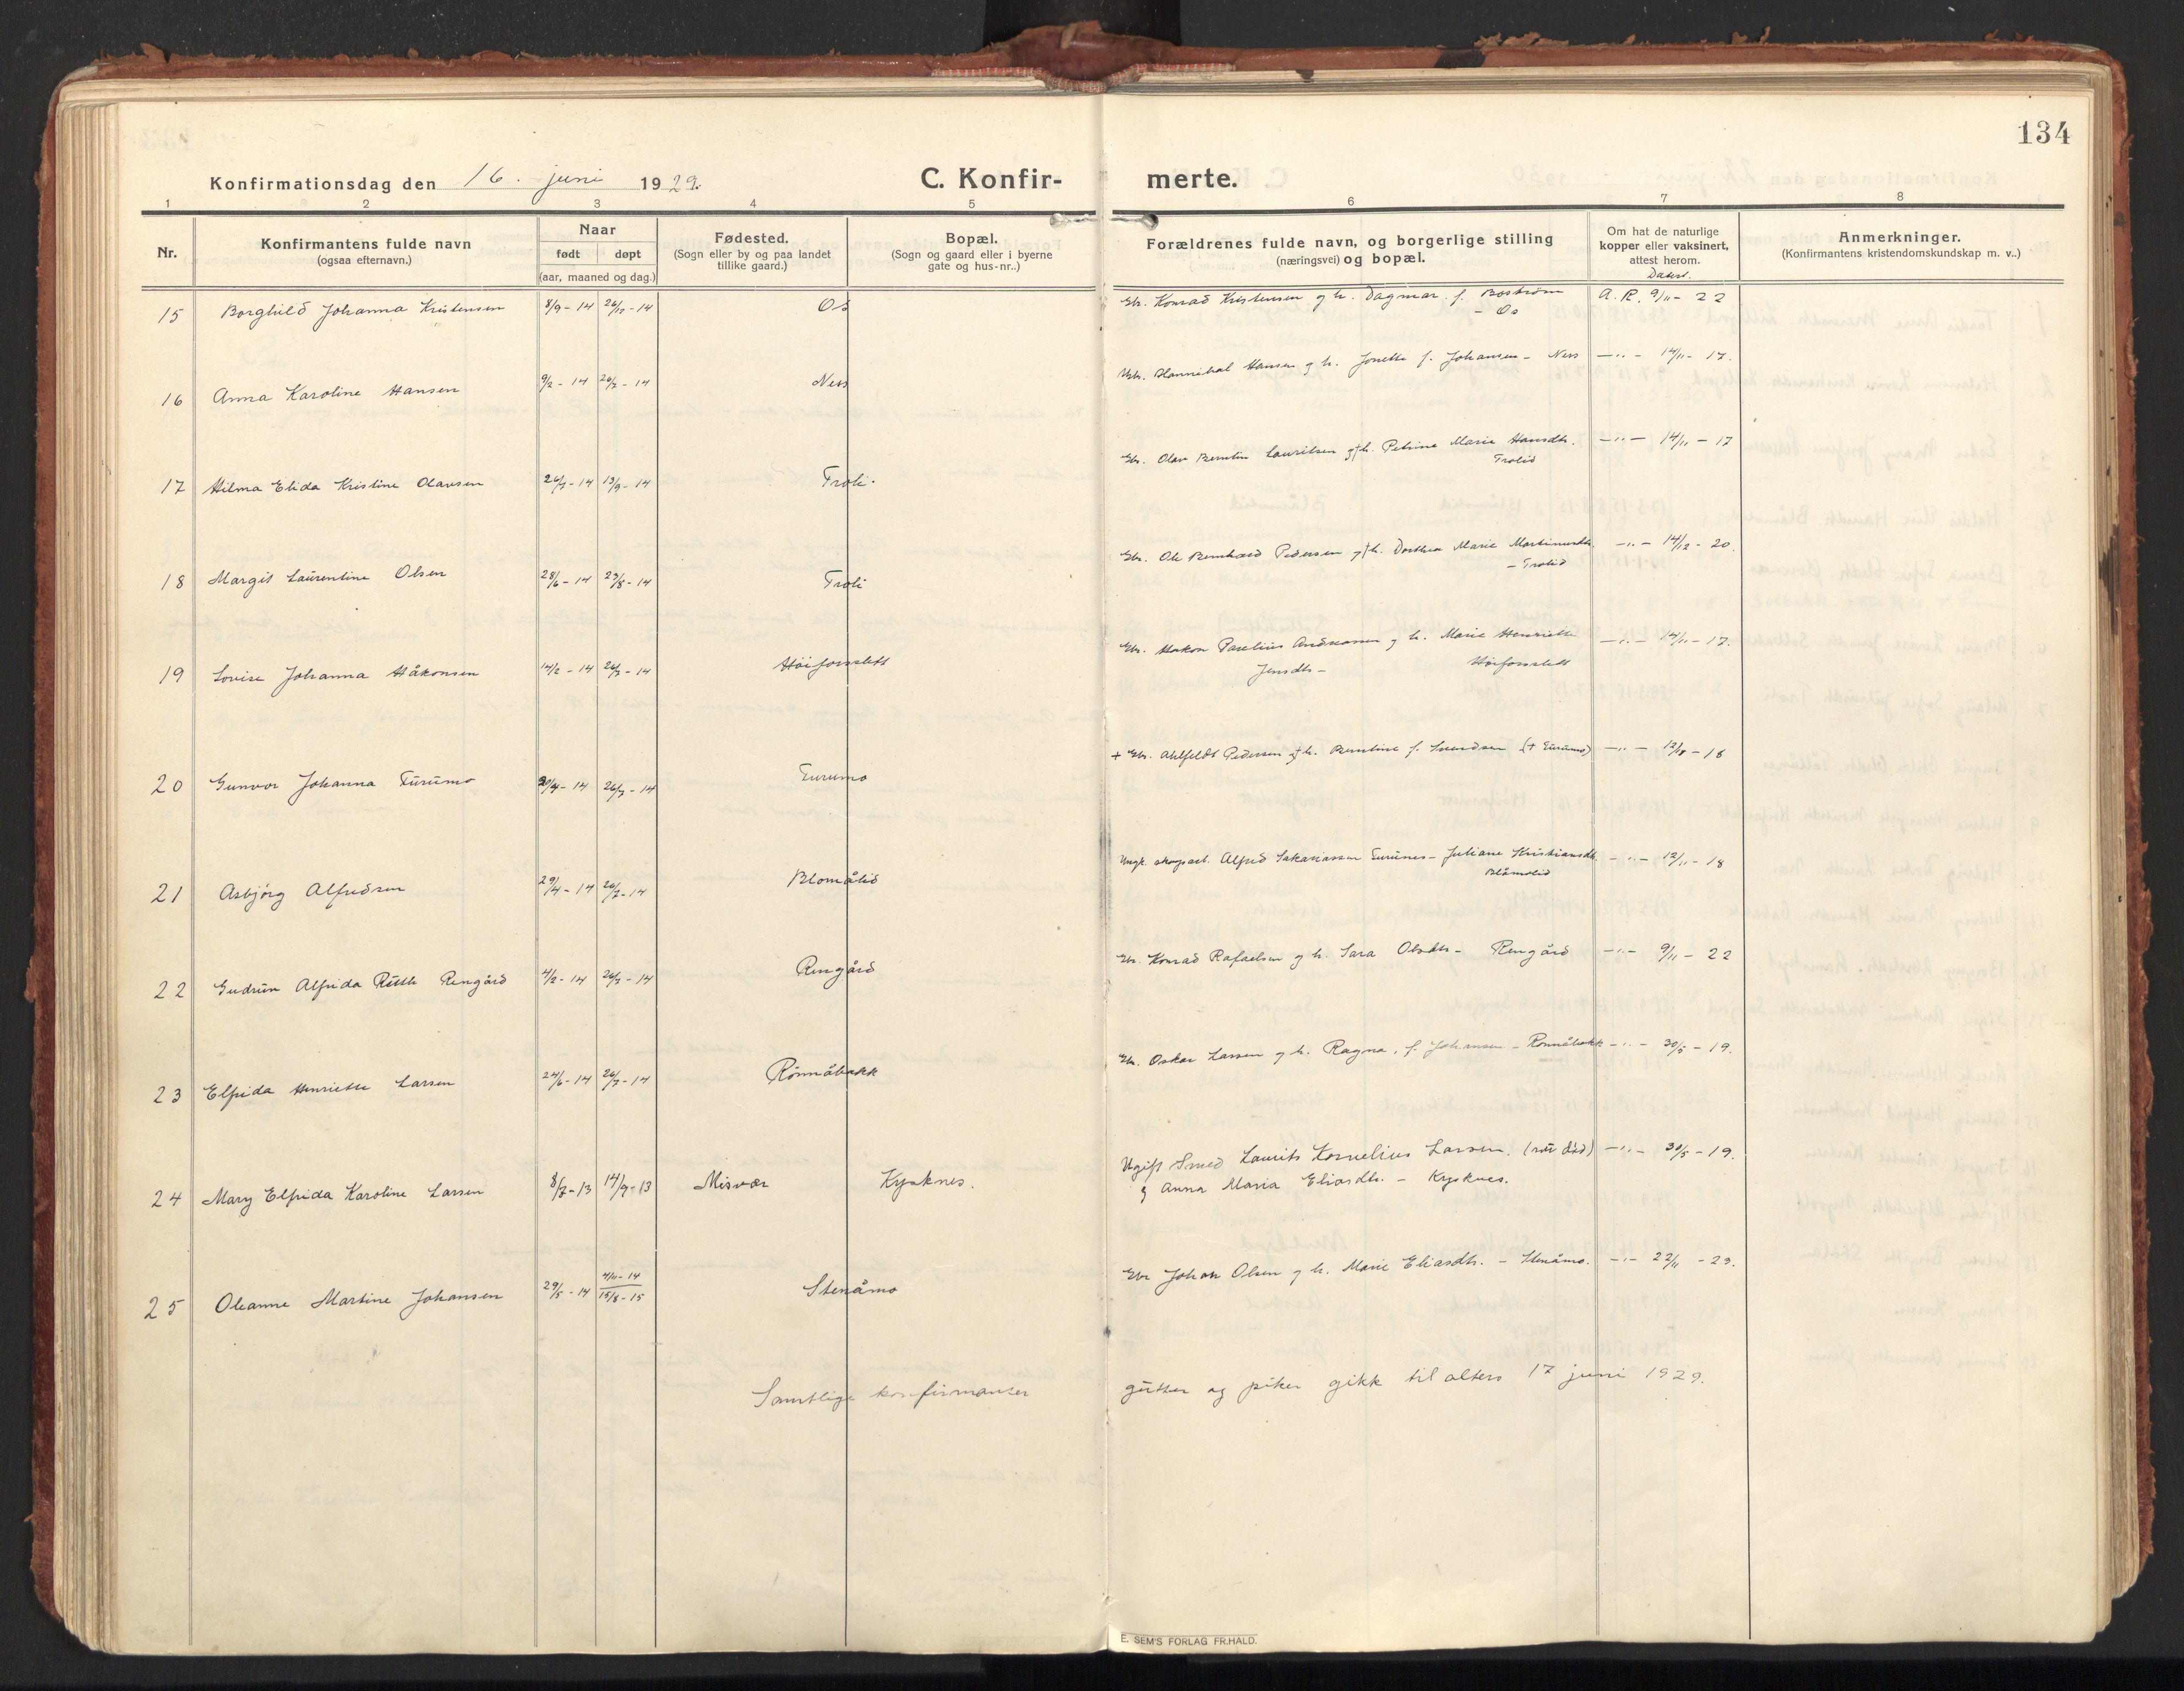 134
Konfirmationsdag den 16. juni 1929.
C. Konfir- merte.
1 2 3 4 5 6 7 8
Nr.
Konfirmantens fulde navn
(ogsaa efternavn.)
Naar
født døpt
(aar, maaned og dag.)
Fødested.
(Sogn eller by og paa landet
tillike gaard.)
Bopæl.
(Sogn og gaard eller i byerne
gate og hus-nr..)
Forældrenes fulde navn, og borgerlige stilling
(næringsvei) og bopæl.
Om hat de naturlige
kopper eller vaksinert,
attest herom.
Datert.
Anmerkninger.
(Konfirmantens kristendomskundskap m. v..)
15 Borghild Johanna Kristensen 8/9-14 26/10-14 Os Gbr. Konrad Kristensen og h. Dagmar f. Boström A. R. 9/11-22
- Os
16 Anna Karoline Hansen 9/2-14 26/7-14 Ness Hannibal Hansen og h. Jonette f. Johansen - Ness -"- 14/11-17.
17 Hilma Elida Kristine Olavsen 26/7-14 13/9-14 Troli. Gbr. Olav Berntin Lauritsen og h. Petrine Marie Hansdtr. -"- 14/11-17
Trolid
18 Margit Laurentine Olsen 28/6-14 23/8-14 Troli Gbr. Ole Bernhard Pedersen og h. Dorthea Marie Martinusdtr. -"- 14/12-20.
- Trolid
19 Lovise Johanna Håkonsen 14/2-14 26/7-14 Höiforsslett Gbr. Hakon Parelius Andreassen og h. Marie Henriette -"- 14/11-17.
Jensdtr- Höiforsslett
20 Gunvor Johanna Furumo 20/4-14 26/7-14 Furumo + Gbr. Ahlfeldt Pedersen og h. Berntine f. Svendsen (+ Furumo) -"- 12/8-18
21 Asbjörg Alfredsen 29/4-14 26/7-14 Blomålid Ungk. skogsarb. Alfred Sakariassen Furunes - Juliane Kristiansdtr. -"- 12/11-18
Blåmolid
22 Gudrun Alfrida Ruth Rengård 4/2-14 26/7-14 Rengård Gbr. Konrad Rafaelsen og h. Sara Olsdtr- Rengård -"- 9/11-22
23 Elfrida Henriette Larsen 24/6-14 26/7-14 Rönnåbakk Gbr. Oskar Larsen og h. Ragna, f. Johansen - Rönnåbakk -"- 30/5-19.
24 Mary Elfrida Karoline Larsen 8/7-13 14/9-13 Misvær Kysknes. Ugift Smed Laurits Kornelius Larsen. (nu död) -"- 30/5-19.
og Anna Maria Eliasdtr. - Kysknes.
25 Oleanne Martine Johansen 29/5-14 4/11-14 15/8-15 Stenåmo Gbr Johan Olsen og h. Marie Eliasdtr. - Stenåmo. -"- 22/11-29.
Samtlige konfirmanter gutter og piker gikk til alters 17 juni 1929.
E. SEM'S FORLAG FR.HALD.